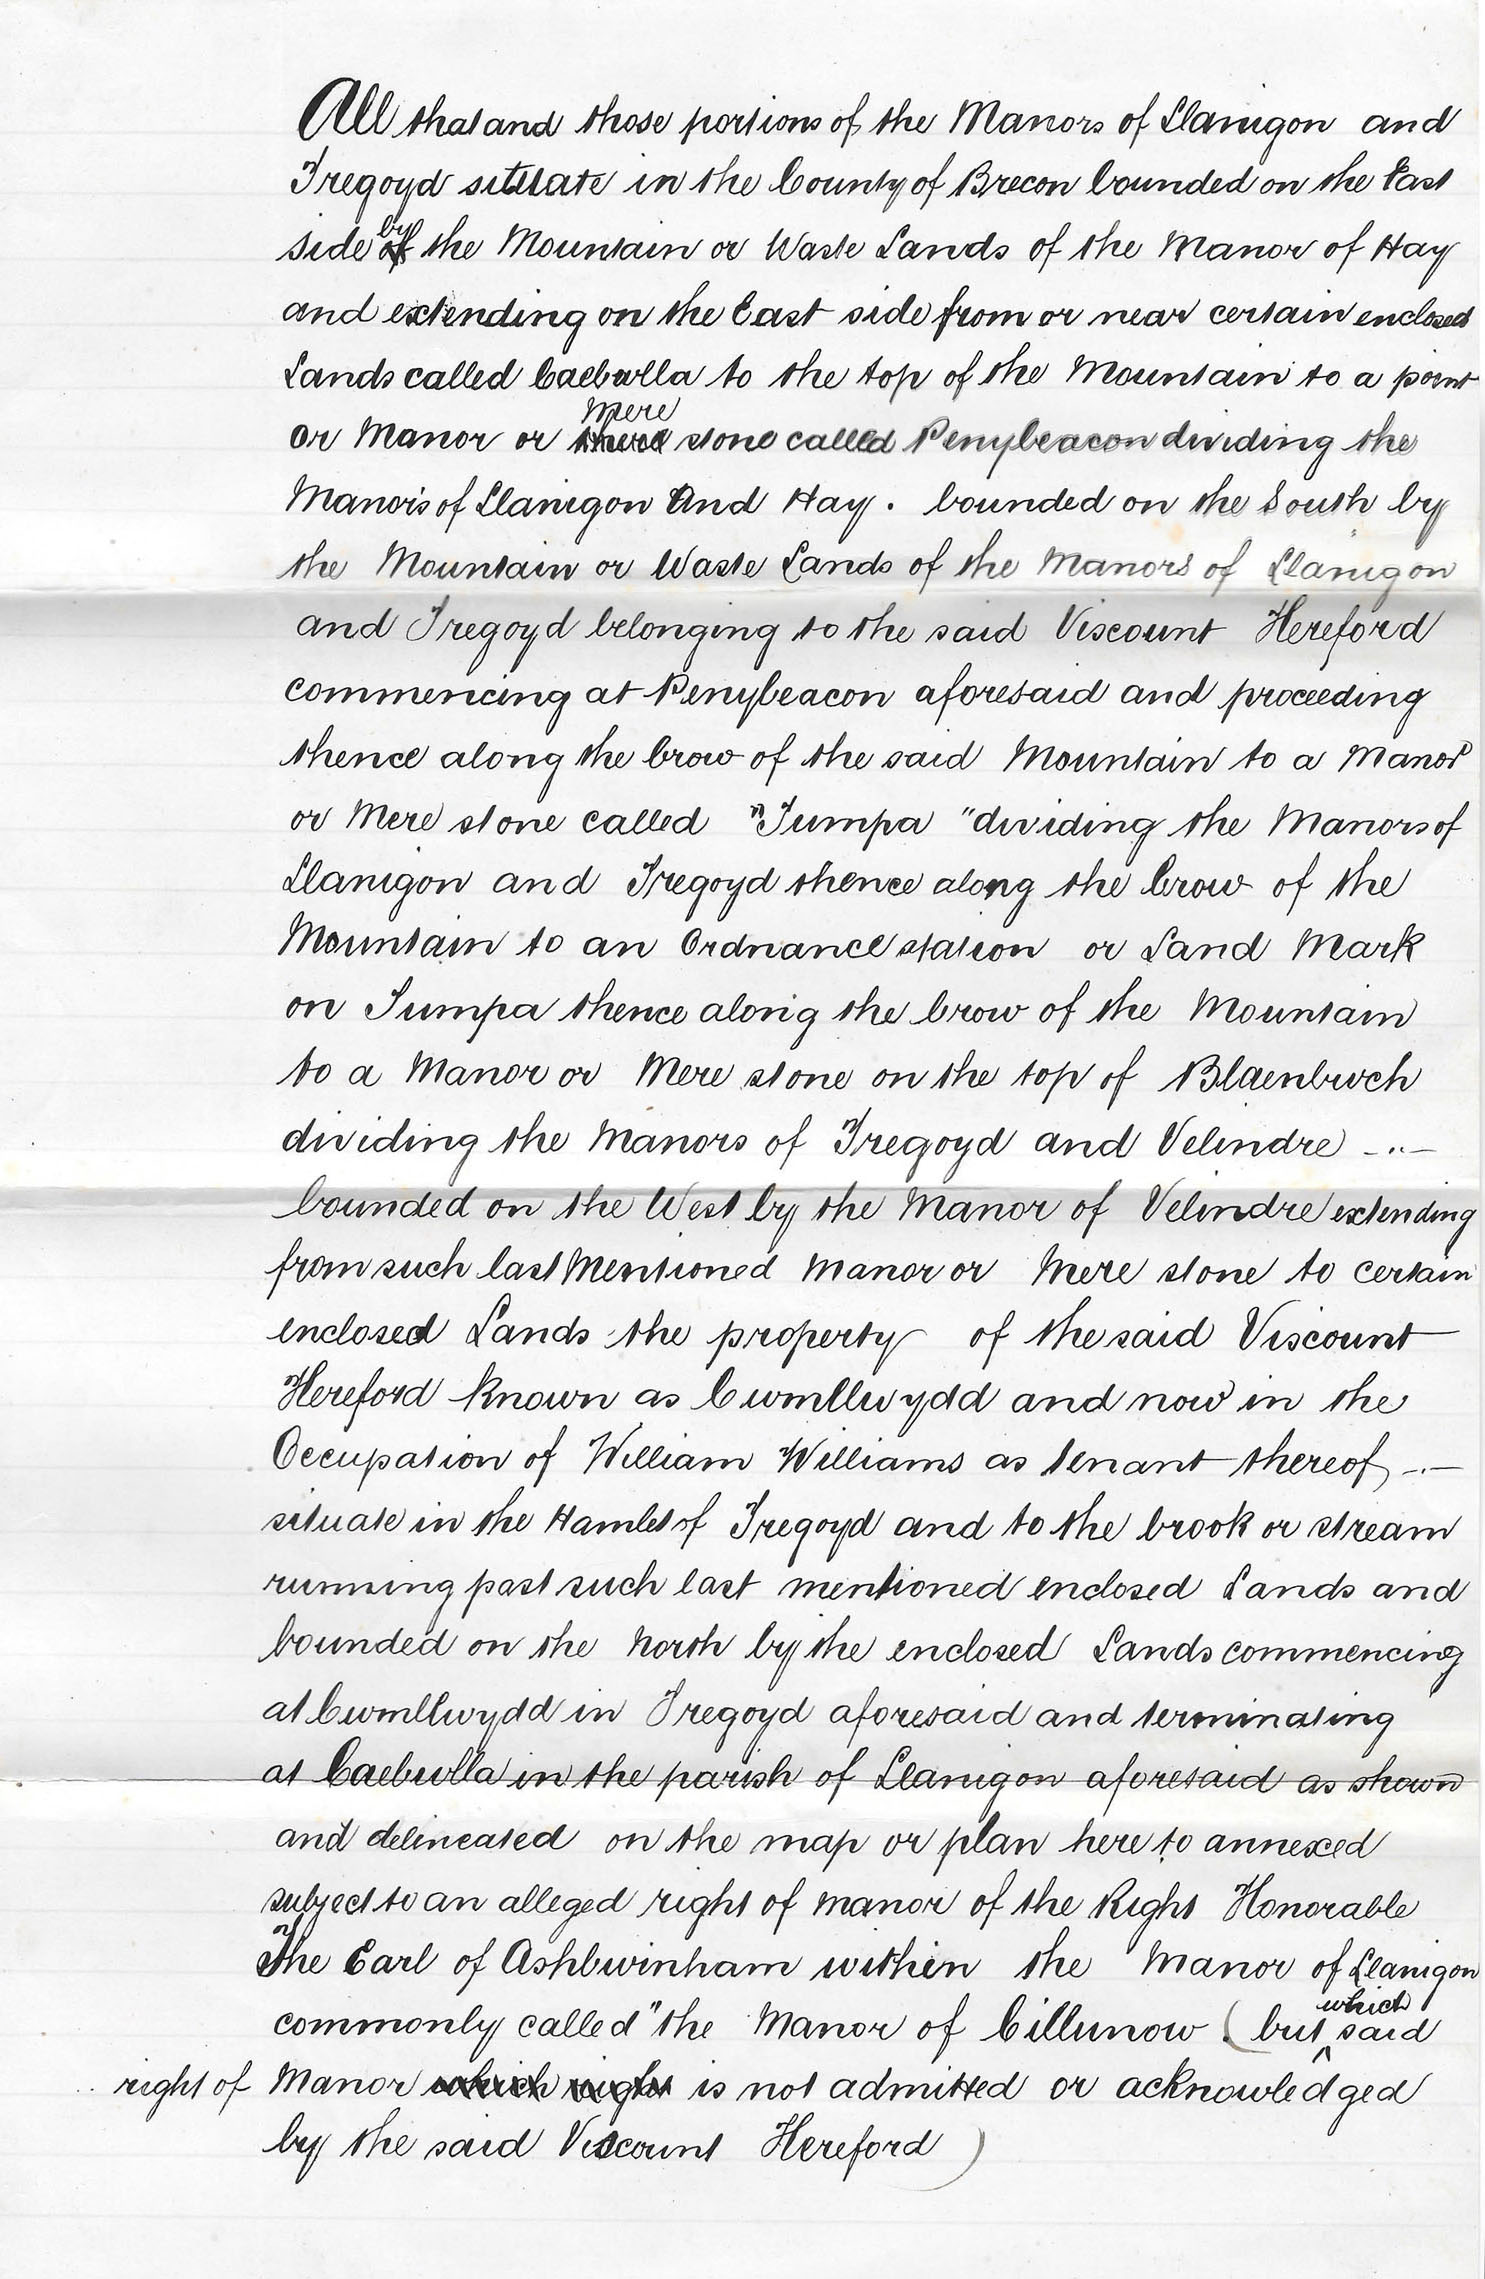 All that and those portions of the Manors of Llanigon and
Tregoyd situate in the County of Brecon bounded on the East
side by the Mountain or Waste Lands of the Manor of Hay
and extending on the East side from or near certain enclosed
Lands called Caebwlla to the top of the Mountain to a point
or Manor or Mere stone called Penybeacon dividing the
Manors of Llanigon and Hay. bounded on the South by
the Mountain or Waste Lands of the Manors of Llanigon
and Tregoyd belonging to the said Viscount Hereford
commencing at Penybeacon aforesaid and proceeding
thence along the brow of the said Mountain to a Manor
or Mere stone called "Tumpa" dividing the Manors of
Llanigon and Tregoyd thence along the brow of the
Mountain to an Ordnance station or Land Mark
on Tumpa thence along the brow of the Mountain
to a Manor or Mere stone on the top of Blaenbwch
dividing the Manors of Tregoyd and Velindre -..-
bounded on the West by the Manor of Velindre extending
from such last Mentioned Manor or Mere stone to certain
enclosed Lands the property of the said Viscount
Hereford known as Cwmllwydd and now in the
Occupation of William Williams as tenant thereof -..-
situate in the Hamlet of Tregoyd and to the brook or stream
running past such last mentioned enclosed Lands and
bounded on the North by the enclosed Lands commencing
at Cwmllwydd in Tregoyd aforesaid and terminating
at Caebwlla in the parish of Llanigon aforesaid as shown
and delineated on the map or plan here to annexed
subject to an alleged right of manor of the Right Honorable
The Earl of Ashbwinham within the Manor of Llanigon
commonly called "the Manor of Cillunow. (but which said
right of Manor which right is not admitted or acknowledged
by the said Viscount Hereford)